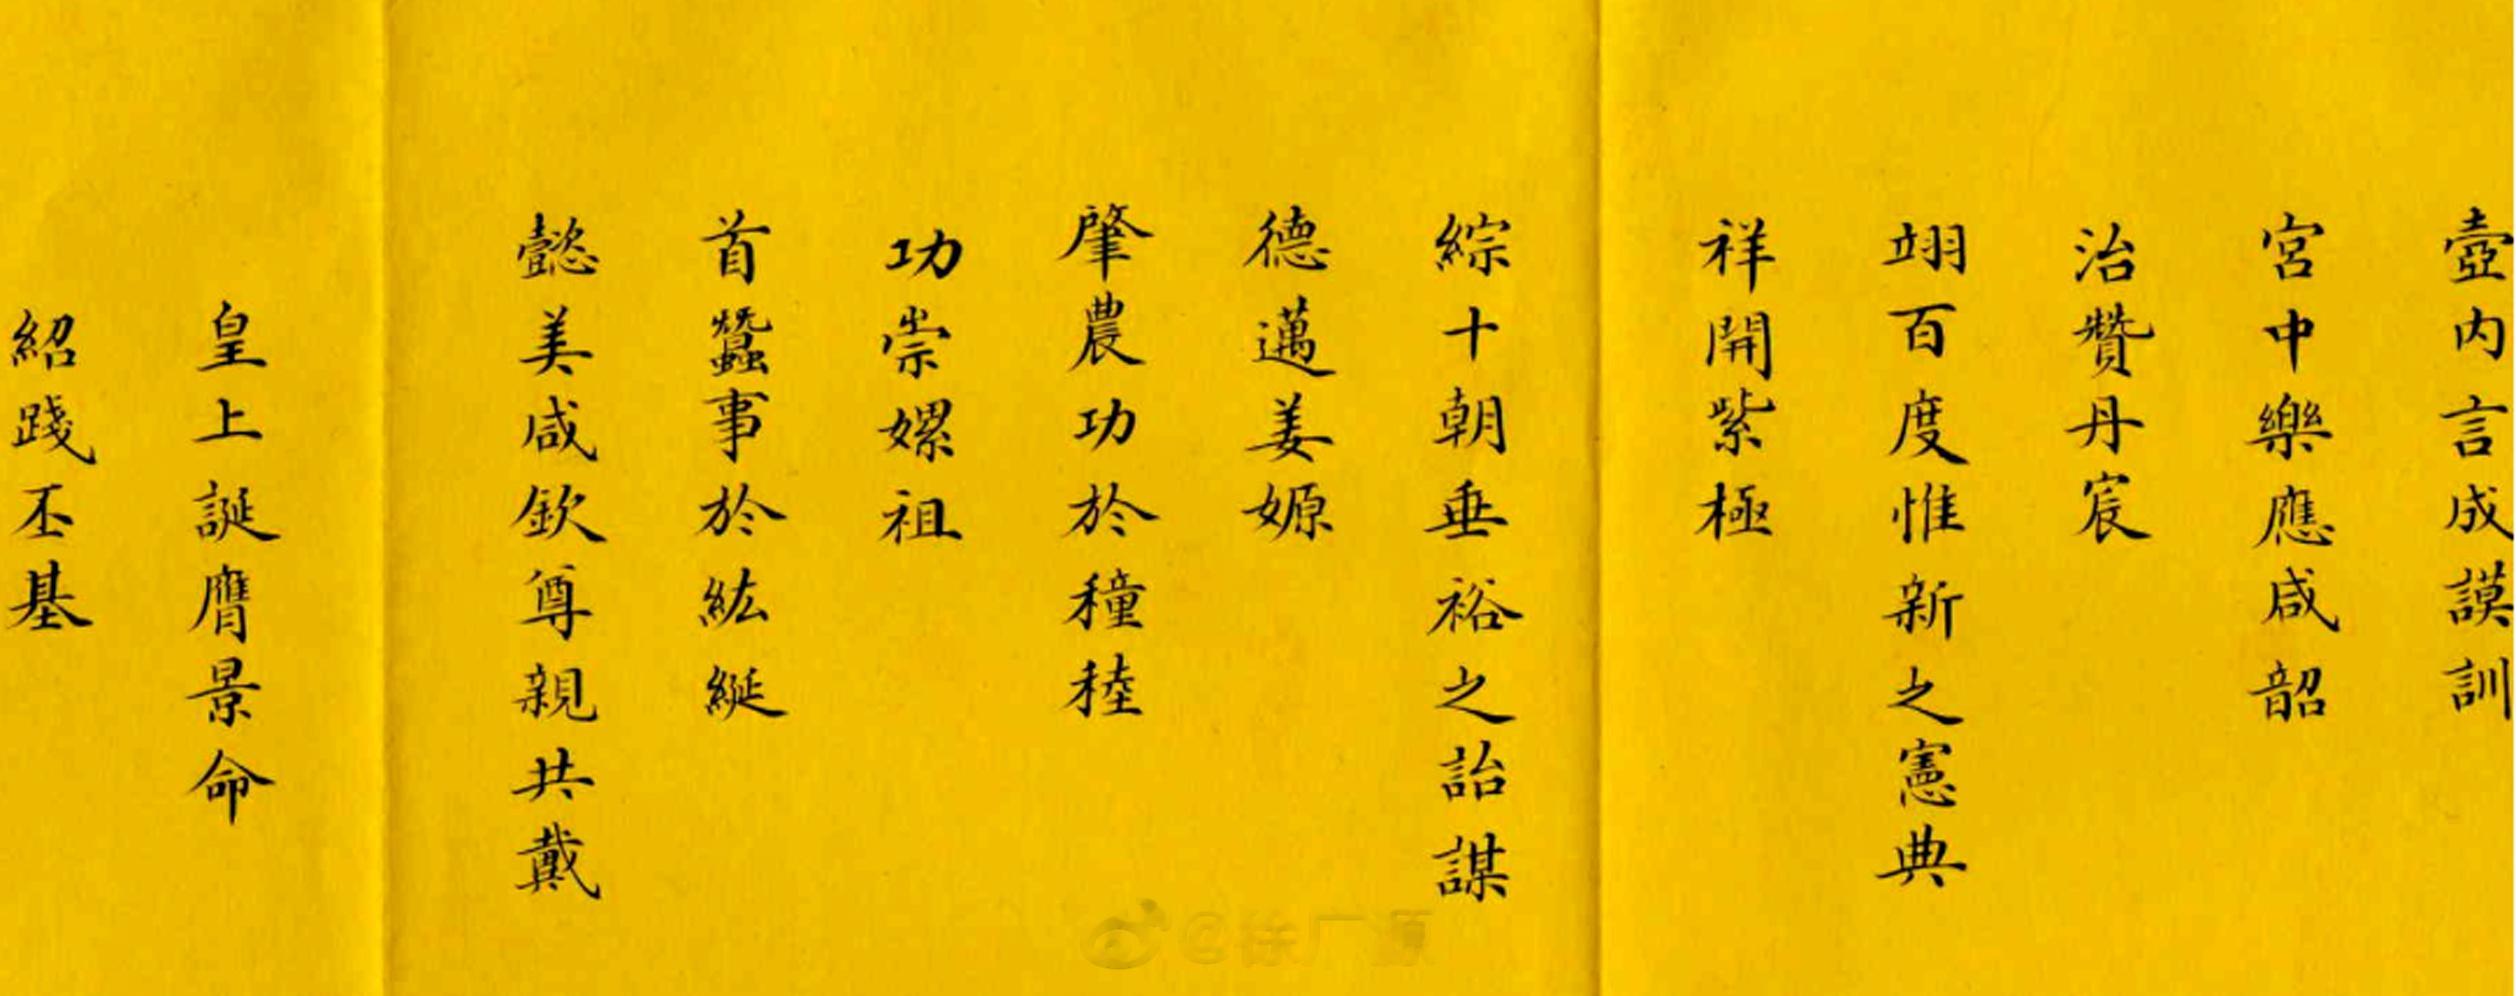 壼内言成謨訓
宮中樂應咸韶
治贊丹宸
翊百度惟新之憲典
祥開紫極
綜十朝垂裕之詒謀
德邁姜嫄
肇農功於穜稑
功崇嫘祖
首蠶事於紘綖
懿美咸欽尊親共戴
皇上誕膺景命
紹踐丕基
@徐广源